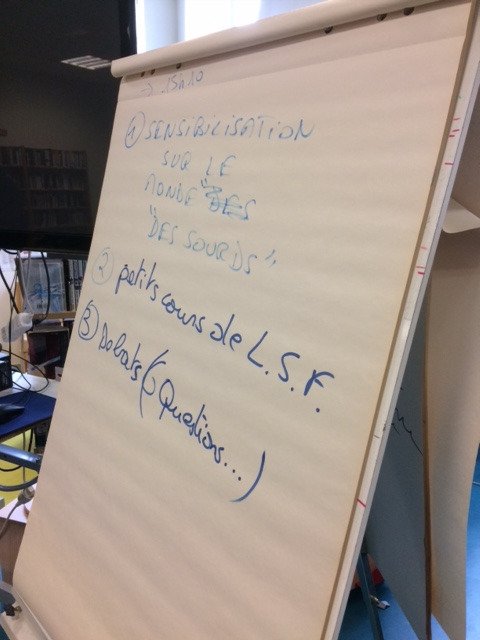 → 15h10
① SENSIBILISATION
SUR LE
MONDE
"DES SOURDS"
② petits cours de L.S.F.
③ Debats (Questions...)